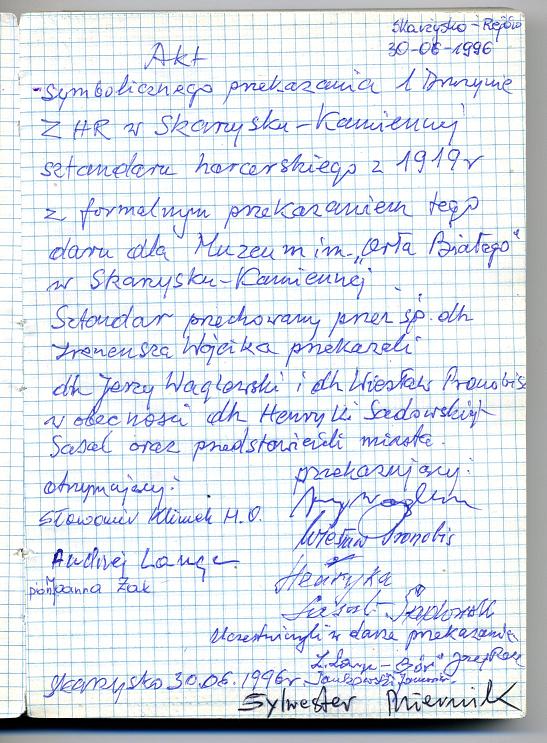 Skarżysko-Rejów
30-06-1996
Akt
symbolicznego przekazania 1 Drużynie
ZHR w Skarżysku-Kamiennej
sztandaru harcerskiego z 1919r
z formalnym przekazaniem tego
daru dla Muzeum im. „Orła Białego"
w Skarżysku-Kamiennej.
Sztandar przechowany przez śp. dh
Ireneusza Wójcika przekazali
dh Jerzy Waglowski i dh Wiesław Pronobis
w obecności dh Henryki Sadowskiej-
Sasal oraz przedstawicieli miasta.
przekazujący:
otrzymujący:
Sławomir Klimek H.O.
Wiesław Pronobis
Andrzej Lange
Henryka
pion. Joanna Żak
Uczestniczyli w darze przekazania
Skarżysko 30.06.1996r Jankowski
Sylwester Dziernik